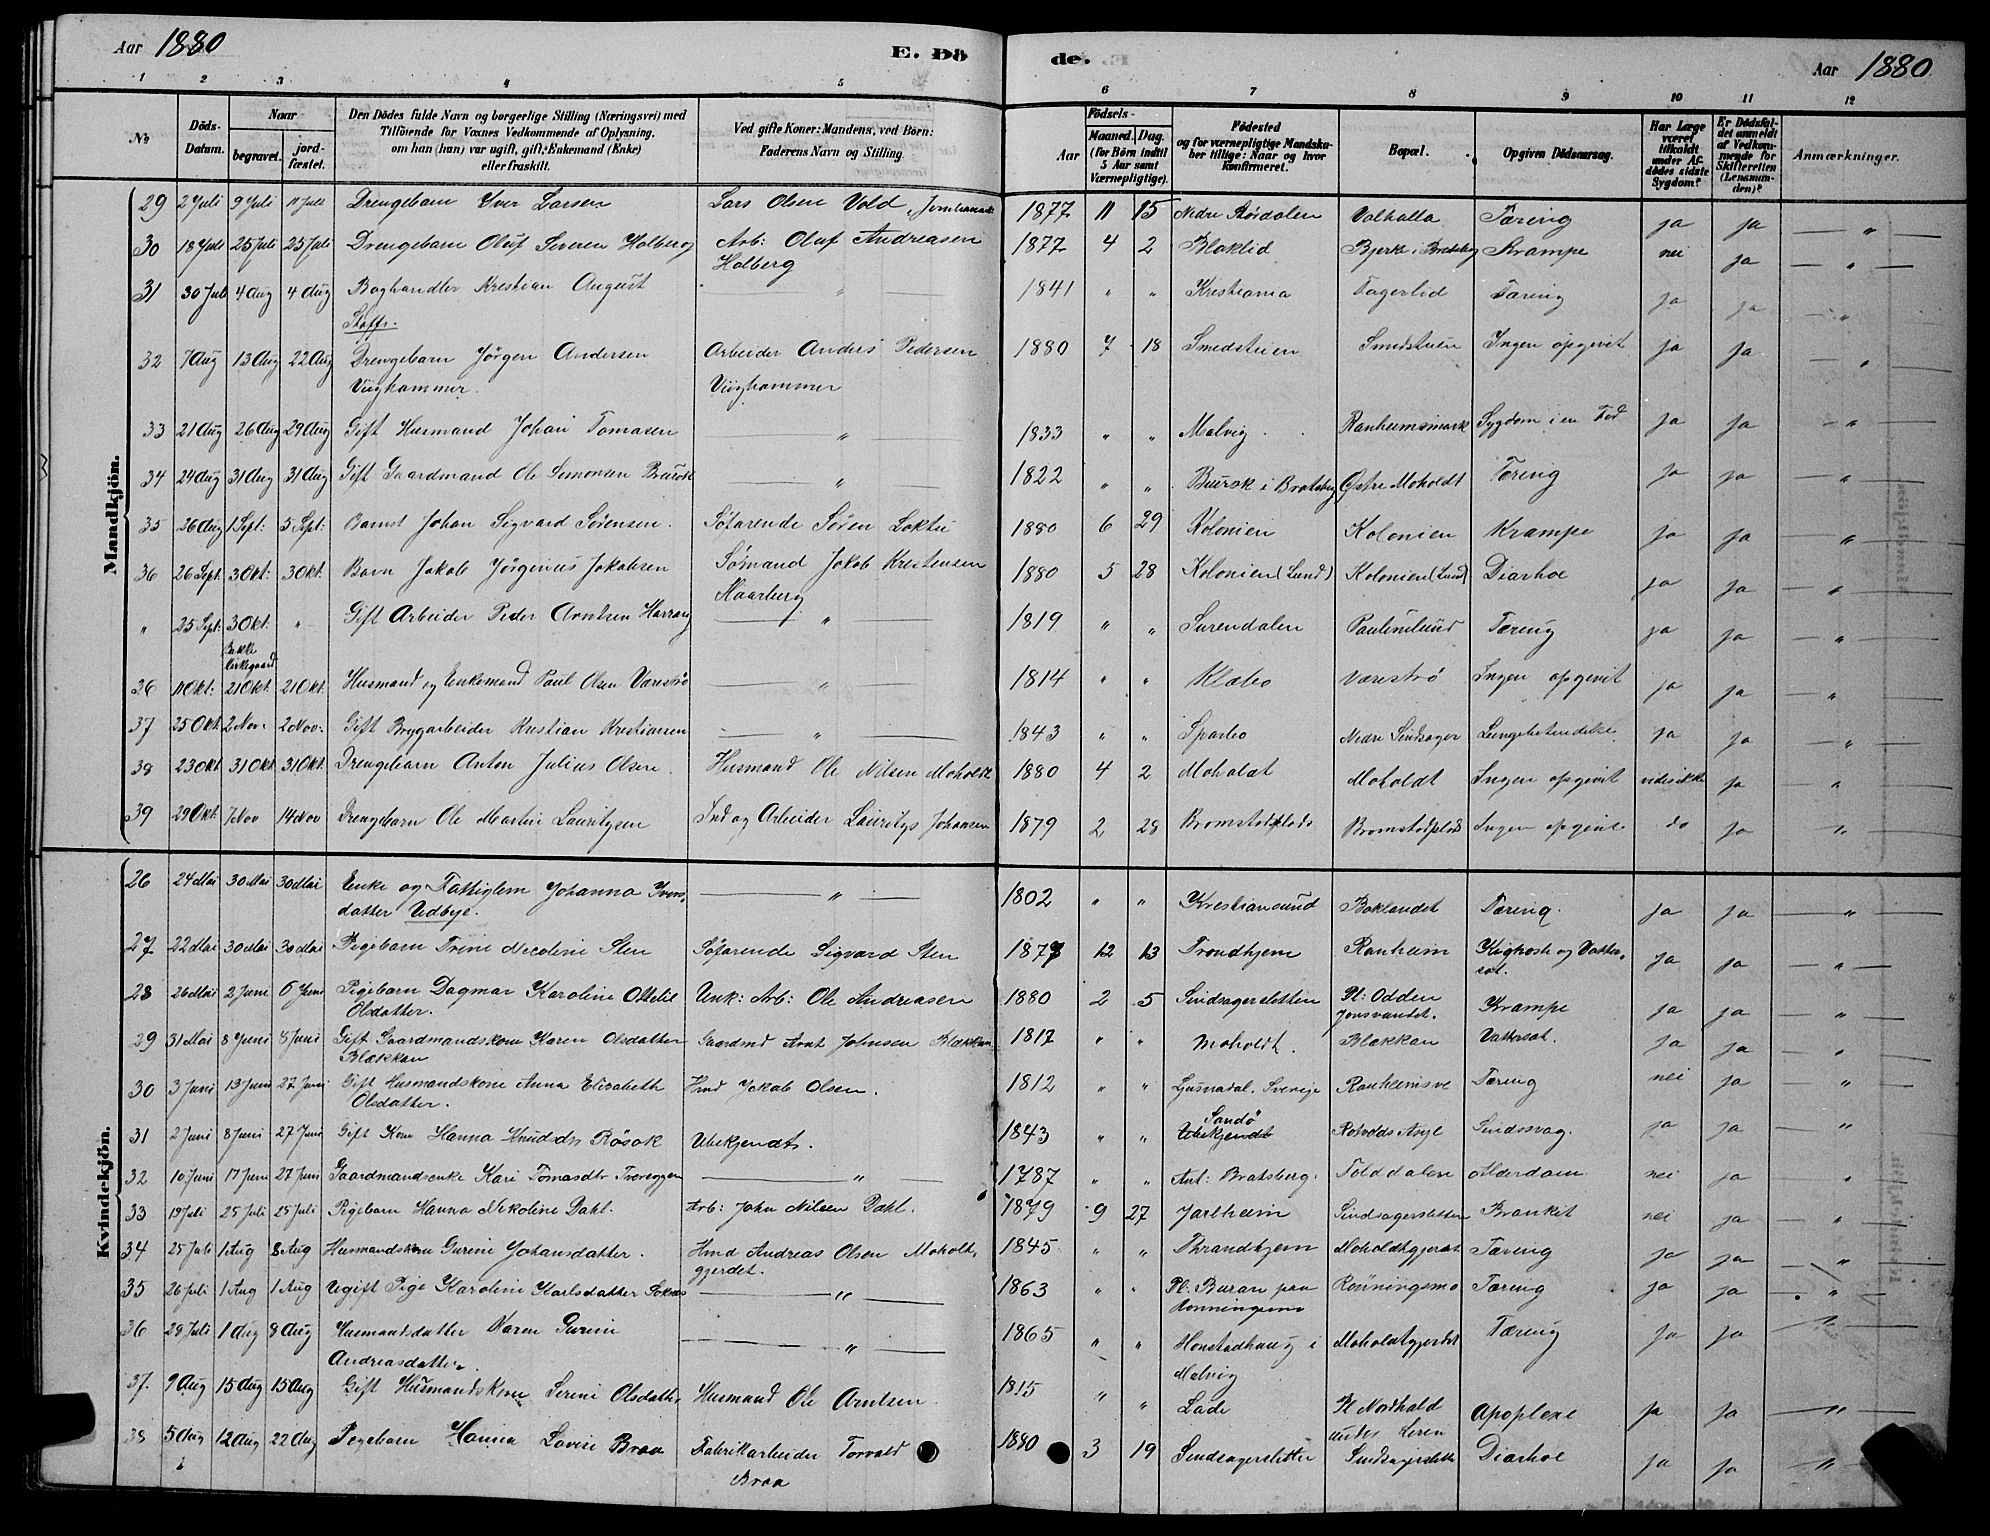 Aar 1880 E. Dö de. Aar 1880
1 2 3 4 5 6 7 8 9 10 11 12
No Döds-Datum. Naar begravet. jord-fæstet. Den Dödes fulde Navn og borgerlige Stilling (Næringsvei) med Tilföiende for Voxnes Vedkommende af Oplysning. om han (hun) var ugift, gift, Enkemand (Enke) eller fraskilt. Ved gifte Koner: Mandens, ved Börn: Faderens Navn og Stilling. Födsels- Aar Maaned. Dag. (for Börn indtil 5 Aar samt Værnepligtige). Födested og for værnepligtige Mandskaber tillige: Naar og hvor konfirmeret. Bopæl. Opgiven Dödsaarsag. Har Læge været tilkaldt under Afdödes sidste Sygdom? Er Dödsfaldet anmeldt af Vedkommende for Skifteretten (Lensmanden)? Anmærkninger.
Mandkjön.
29 2 Juli 9 Juli 11 Juli Drengebarn Iver Larsen Lars Olsen Vold 1877 11 15 Nedre Størdalen Valhalla Tæring ja ja "
30 18 Juli 25 Juli 25 Juli Drengebarn Oluf Severen Holberg Arb: Oluf Andreasen 1877 4 2 Bloklid Bjerke i Bratsberg Krampe nei ja "
Holberg
31 30 Juli 4 Aug 4 Aug Boghandler Krestian August " 1841 " " Kristiania Fagerlid Tæring ja ja "
Hoffs.
32 7 Aug 13 Aug 22 Aug Drengebarn Jörgen Andersen Arbeider Anders Pedersen 1880 7 18 Smedstuen Smedstuen Ingen opgivet ja ja "
Viighammer. Viighammer
33 21 Aug 26 Aug 29 Aug Gift Husmand Johan Tomasen " 1833 " " Malvig Ranheimsmark Sygdom i en Fod ja ja "
34 24 Aug 31 Aug 31 Aug Gift Gaardmand Ole Simonsen Buurok " 1822 " " Buurok i Bratsberg Østre Moholdt Tæring ja ja "
35 26 Aug 1 Sept: 5 Sept: Barnet Johan Sigvard Sørensen. Søfarende Søren Loktu 1880 6 29 Kolonien Kolonien Krampe ja ja "
36 26 Sept. 3 Okt: 3 Okt. Barn Jakob Jörginius Jakobsen Sømand Jakob Kristensen 1880 5 28 Kolonien (Lund) Kolonien (Lund) Diarhoe ja ja "
Haarberg
" 25 Sept: 3 Okt. " Gift Arbeider Peder Arntsen Harrang " 1819 " " Surendalen Paulinelund Tæring ja ja "
Bakke kirkegaard
36 11 Okt: 21 Okt. 21 Okt. Husmand og Enkemand Paul OlsenVærestrø " 1814 " " Klæbo Værestrø Ingen opgivet ja ja "
37 25 Okt. 2 Nov. 2 Nov. Gift Brygarbeider Kristian Kristiansen " 1843 " " Sparbo Nedre Sindsager Lungebetændelse ja ja "
38 23 Okt 31 Okt 31 Okt. Drengebarn Anton Julius Olsen. Husmand Ole Nilsen Moholdt 1880 4 2 Moholdt Moholdt Ingen opgivet vides ikke ja "
39 29 Okt. 7 Nov 14 Nov Drengebarn Ole Martin Lauritysen Ind og Arbeider Laurityts Johansen 1879 2 28 Bromstadplads Bromstadplads Ingen opgivet do ja "
Kvindekjön.
26 24 Mai 30 Mai 30 Mai Enke og Fattiglem Johanna Ivers- " 1802 " " Kristiansund Baklandet Tæring. ja ja "
datter Udbye.
27 22 Mai 30 Mai 30 Mai Pigebarn Trine Nicoline Sten Søfarende Sigvard Sten 1877 12 13 Trondhjem Ranheim Kighoste og Vatter- ja ja "
sot.
28 26 Mai 2 Juni 6 Juni Pigebarn Dagmar Karoline Ottelie Unk: Arb: Ole Andreasen 1880 2 5 Sindsagersletten Pl: Odden Krampe ja ja "
Olsdatter. Jonsvandet.
29 31 Mai 8 Juni 8 Juni Gift Gaardmandskone Karen Olsdatter Gaardmd Arnt Johnsen Blækkan 1817 " " Moholdt. Blækkan Vattersot. ja ja "
Blækkan
30 3 Juni 13 Juni 27 Juni Gift Husmandskone Anna Elisabeth Hmd Jakob Olsen. 1812 " " Ljusnadal. Sverige Ranheimsve Tæring nei ja "
Olsdatter.
31 2 Juni 8 Juni 27 Juni Gift Kone Hanna Knudsdtr Røsok Ubekjendt. 1843 " " Sandö Ubekjendt Rotvolds Asyl Sindssvag. ja ja "
32 10 Juni 17 Juni 27 Juni Gaardmandsenke Kari Tomasdtr Tvereggen " 1787 " " Ant: Bratsberg. Folddalen Alderdom nei ja "
33 19 Juli 25 Juli 25 Juli Pigebarn Hanna Nekoline Dahl. Arb: John Nilsen Dahl. 1879 9 27 Jarlheim Sindsagersletten Bronkit nei ja "
34 25 Juli 1 Aug 8 Aug Husmandskone Gurine Johansdatter. Hmd Andreas Olsen Moholt- 1845 " " Throndhjem Moholdtgjerdet Tæring ja ja "
gjerdet.
35 26 Juli 1 Aug 1 Aug Ugift Pige Karoline Karlsdatter Soknes " 1863 " " Pl: Buran paa Rönningsmo Tæring ja ja "
Rönningsmo
36 29 Juli 1 Aug 8 Aug Husmandsdatter Karen Gurine " 1865 " " Honstadhaug i Moholdtgjerdet Tæring ja ja "
Andreasdatter. Malvig
37. 9 Aug 15 Aug 15 Aug Gift Husmandskone Serine Olsdatter, Husmand Ole Arntsen. 1815 " " Lade Pl Nordhald Apoplexe ja ja "
under Leren
38 5 Aug 12 Aug 22 Aug Pegebarn Hanna Lovise Braa Fabrikarbeider Torvald 1880 3 19 Sindsagersletten Sindsagerslette Diarhoe ja ja "
Braa